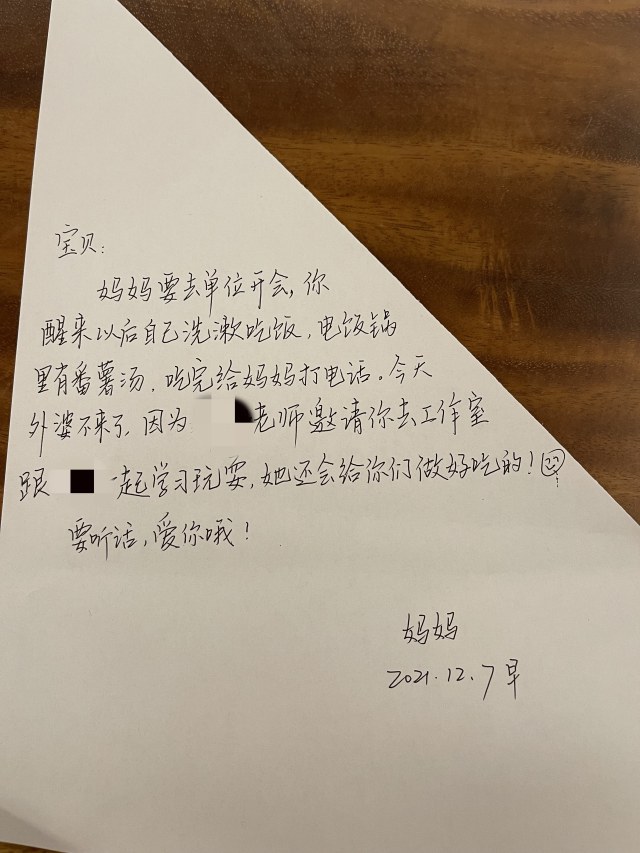 宝贝:
妈妈要去单位开会,你
醒来以后自己洗漱吃饭,电饭锅
里有番薯汤,吃完给妈妈打电话。今天
外婆不来了,因为 老师邀请你去工作室
跟 一起学习玩耍,她还会给你们做好吃的!
要听话,爱你哦!
妈妈
2021.12.7早